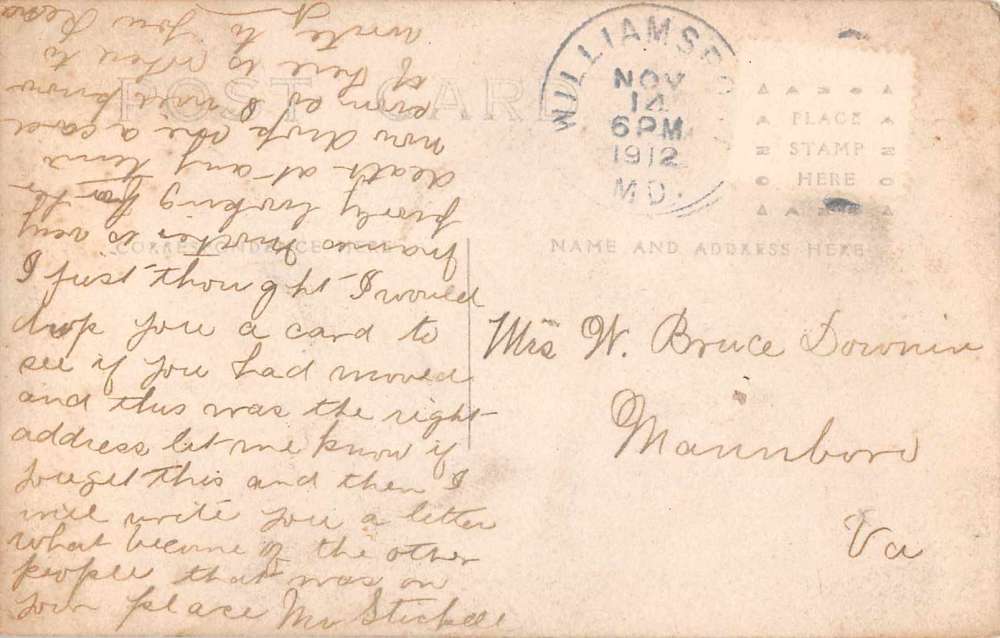 POST CARD
WILLIAMSPO
NOV
14
6PM
1912
MD.
PLACE
STAMP
HERE
CORRESPONDENCE HERE
NAME AND ADDRESS HERE
I just thought I would
drop you a card to
see if you had moved
and this was the right
address let me know if
you get this and then I
will write you a letter
what become of the other
people that was on
your place Mr
mother is very
poorly looking for
death at any time
now drop me a card
I will know
if here is where to
write to you
Mrs W. Bruce Downin
Mannboro
Va